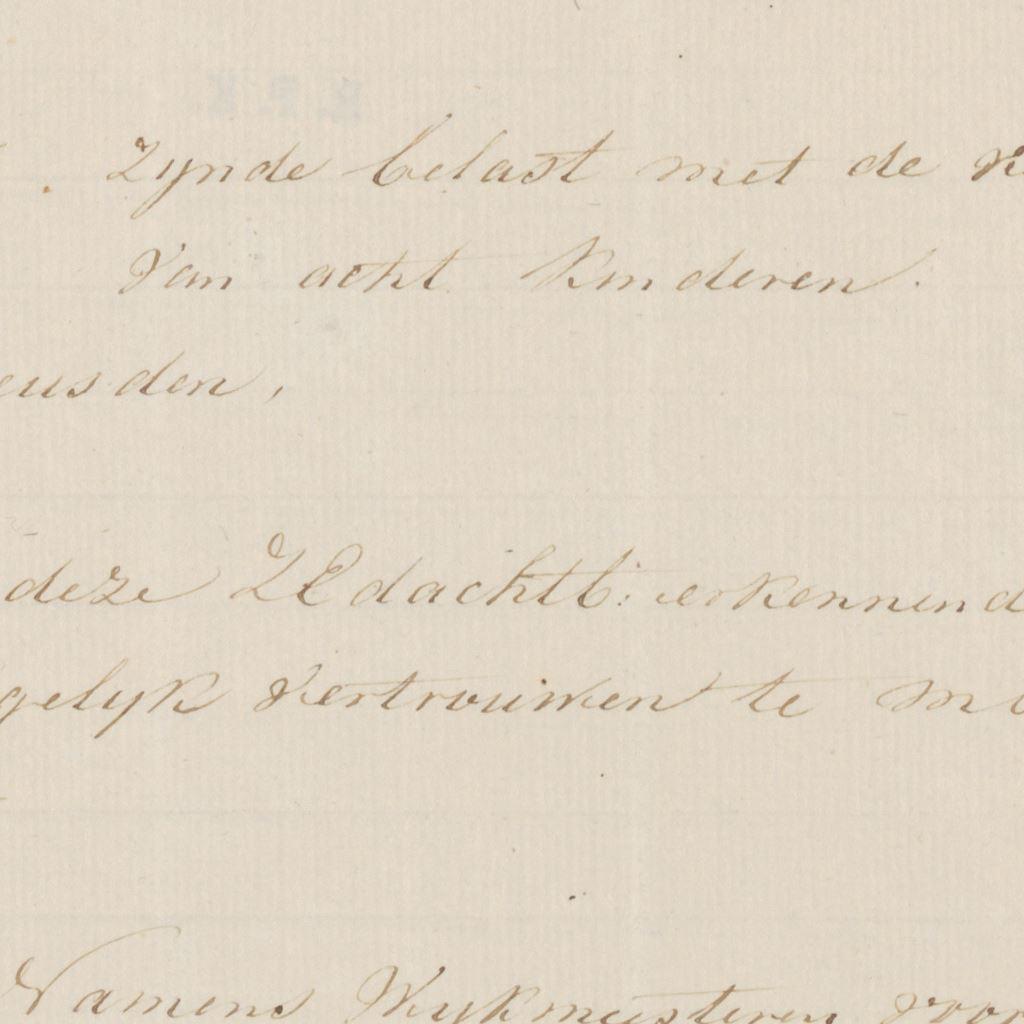 zynde belast met de
van acht kinderen.
eusden,
deze ZEdachtb: erkennend
gelyk vertrouwen te
Namens Wykmeesteren voor